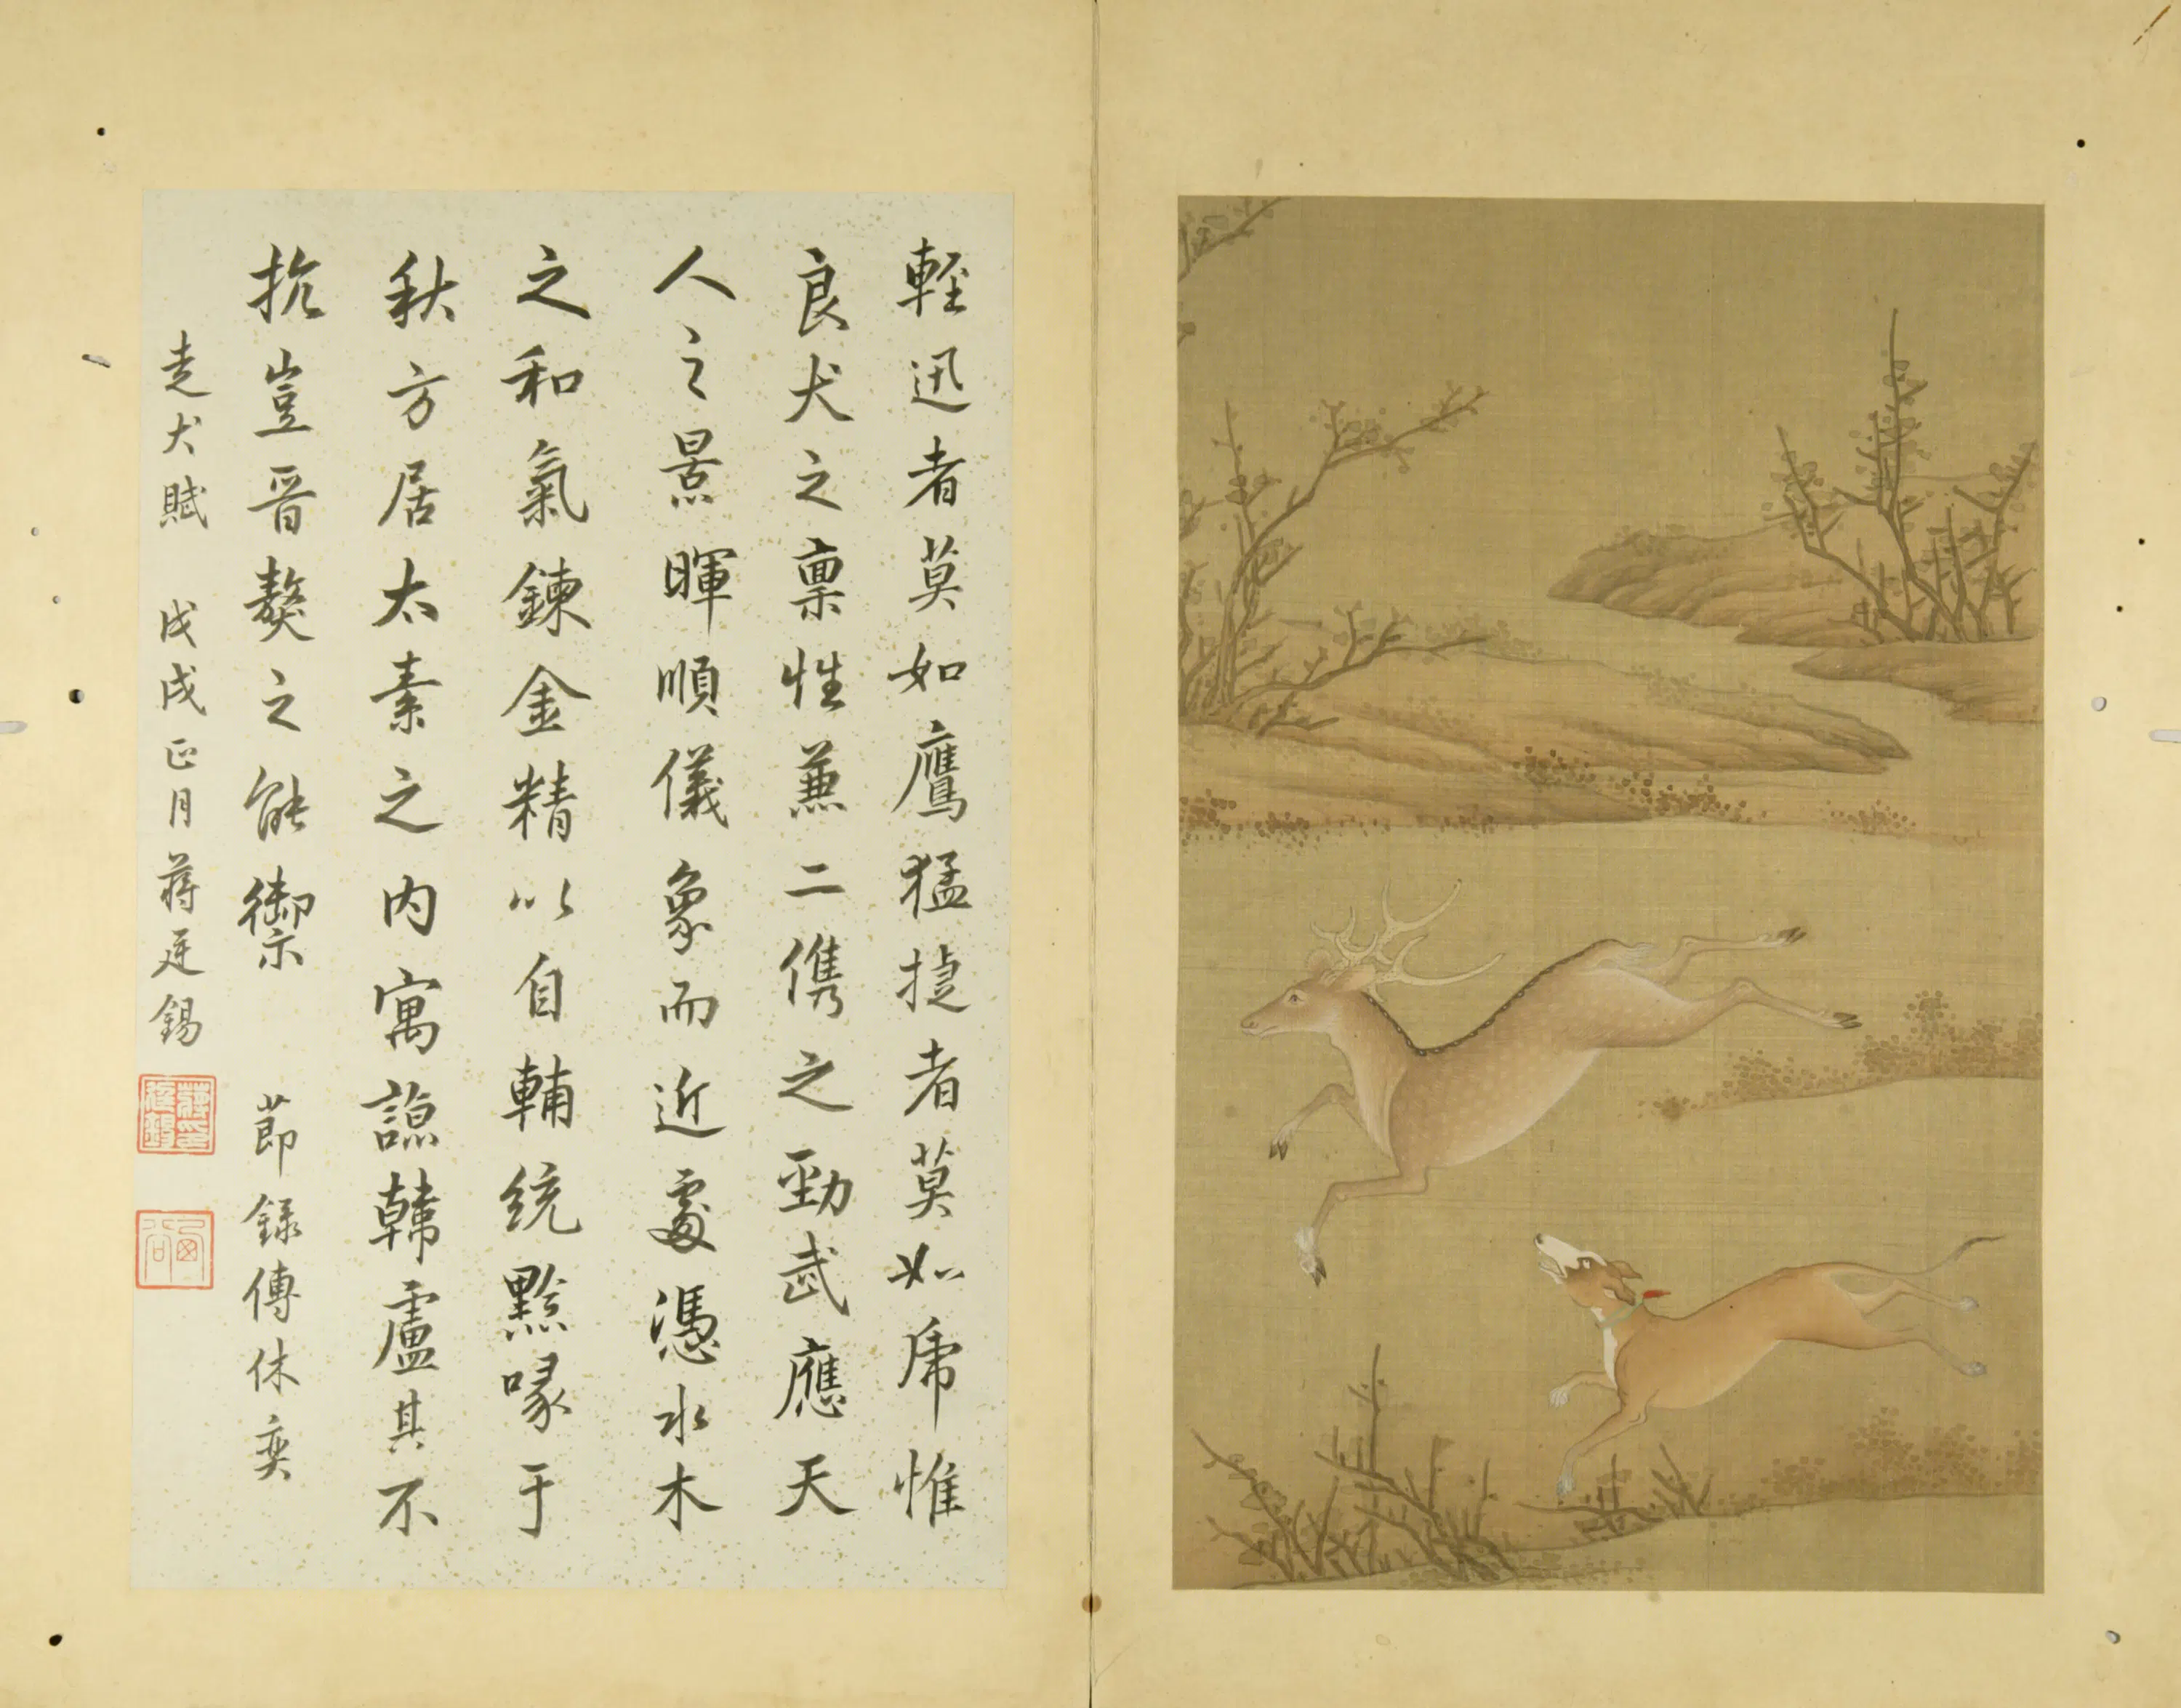 輕迅者莫如鷹猛捷者莫如虎惟
良犬之稟性兼二儁之勁武應天
人之景暉順儀象而近處憑水木
之和氣鍊金精以自輔統黔喙于
秋方居太素之內寓諒韓盧其不
抗豈晉獒之能禦 節錄傅休奕
走犬賦 戊戌正月蔣廷錫
蔣廷錫印
酉君